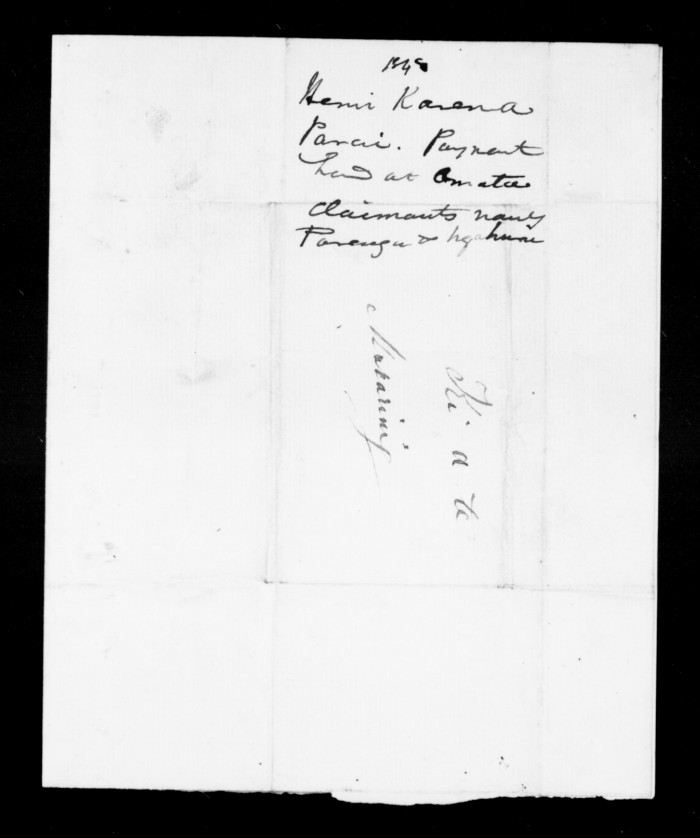 Hemi Karena
Parai. Payment
Land at Omata
Claimants namely
Parenga & Ngahuru
Ki a te
Makarini